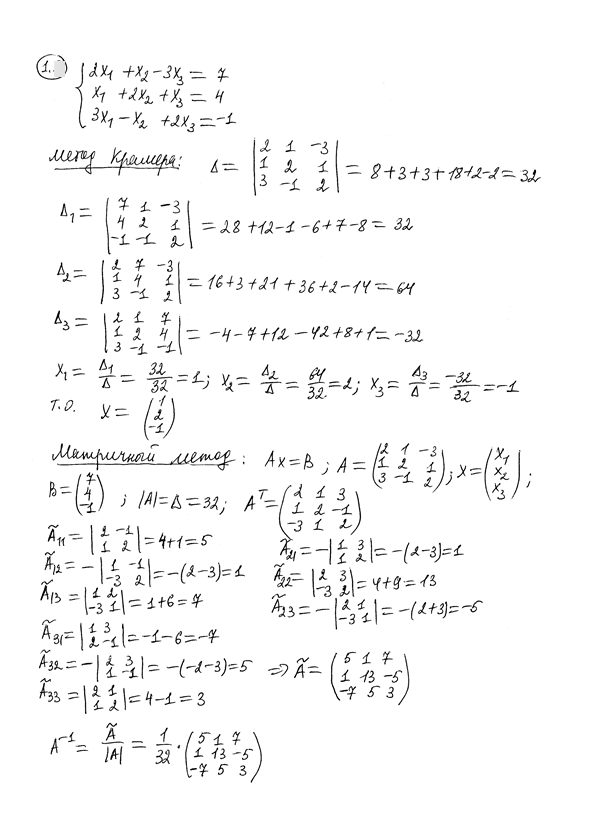 1.
{ 2x₁ + x₂ - 3x₃ = 7
x₁ + 2x₂ + x₃ = 4
3x₁ - x₂ + 2x₃ = -1
Метод Крамера: Δ = |2 1 -3; 1 2 1; 3 -1 2| = 8+3+3+18+2-2 = 32
Δ₁ = |7 1 -3; 4 2 1; -1 -1 2| = 28+12-1-6+7-8 = 32
Δ₂ = |2 7 -3; 1 4 1; 3 -1 2| = 16+3+21+36+2-14 = 64
Δ₃ = |2 1 7; 1 2 4; 3 -1 -1| = -4-7+12-42+8+1 = -32
x₁ = Δ₁/Δ = 32/32 = 1; x₂ = Δ₂/Δ = 64/32 = 2; x₃ = Δ₃/Δ = -32/32 = -1
Т.О. X = (1; 2; -1)
Матричный метод: AX = B; A = (2 1 -3; 1 2 1; 3 -1 2); X = (x₁; x₂; x₃);
B = (7; 4; -1); |A| = Δ = 32; Aᵀ = (2 1 3; 1 2 -1; -3 1 2)
Ã₁₁ = |2 -1; 1 2| = 4+1 = 5 Ã₂₁ = -|1 3; 1 2| = -(2-3) = 1
Ã₁₂ = -|1 -1; -3 2| = -(2-3) = 1 Ã₂₂ = |2 3; -3 2| = 4+9 = 13
Ã₁₃ = |1 2; -3 1| = 1+6 = 7 Ã₂₃ = -|2 1; -3 1| = -(2+3) = -5
Ã₃₁ = |1 3; 2 -1| = -1-6 = -7
Ã₃₂ = -|2 3; 1 -1| = -(-2-3) = 5 ⇒ Ã = (5 1 7; 1 13 -5; -7 5 3)
Ã₃₃ = |2 1; 1 2| = 4-1 = 3
A⁻¹ = Ã/|A| = 1/32 · (5 1 7; 1 13 -5; -7 5 3)